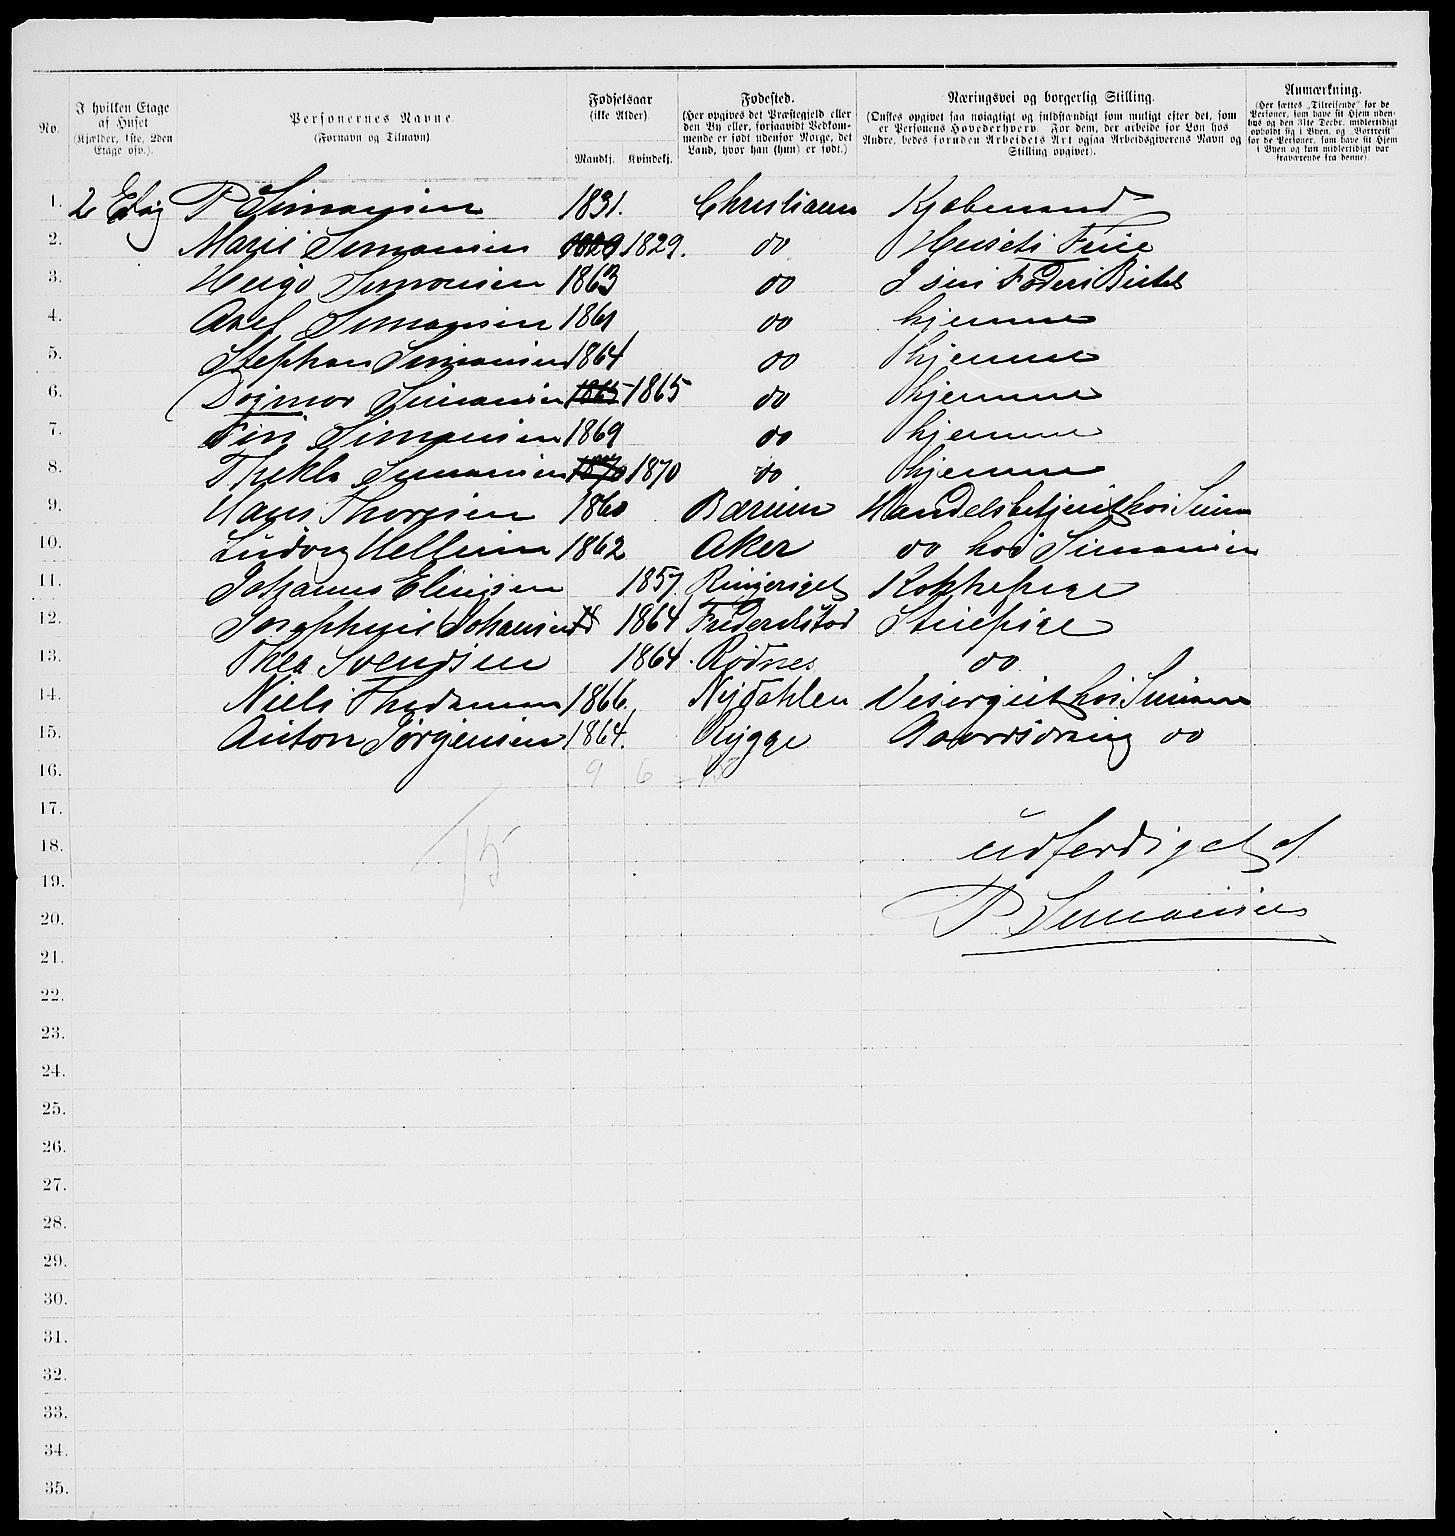 No.
I hvilken Etage af Huset (Kjælder, 1ste, 2den Etage osv.).
Personernes Navne. (Fornavn og Tilnavn).
Fødselsaar (ikke Alder) Mandkj. Kvindekj.
Fødested. (Her opgives det Præstegjeld eller den By eller, forsaavidt Vedkommende er født udenfor Norge, det Land, hvor han (hun) er født.)
Næringsvei og borgerlig Stilling. (Ønskes opgivet saa nøiagtigt og fuldstændigt som muligt efter det, som er Personens Hovederhverv. For dem, der arbeide for Løn hos Andre, bedes foruden Arbeidets Art ogsaa Arbeidsgiverens Navn og Stilling opgivet).
Anmærkning. (Her sættes „Tilreisende" for de Personer, som have sit Hjem udenbys og den 31te Decbr. midlertidigt opholdt sig i Byen, og „Bortreist" for de Personer, som have sit Hjem i Byen og kun midlertidigt var fraværende fra denne).
1. 2 Etaig P Simonsen 1831. Christiania Kjøbmand
2. Marie Simonsen 1829 1829. do Husets Frue
3. Helge Simonsen 1863 do I sin Faders Butik
4. Axel Simonsen 1861 do hjemme
5. Stephan Simonsen 1864 do hjemme
6. Dagmar Simonsen 1865 1865 do hjemme
7. Finn Simonsen 1869 do hjemme
8. Thekla Simonsen 1870 1870 do hjemme
9. Hans Thoresen 1860 Bærum Handelsbetjent hos Simon
10. Ludvig Hellum 1862 Aker do hos Simonsen
11. Johanne Elingsen 1857 Ringeriget Kokkepige
12. Josephine Johansen 1864 Frederikstad Stuepige
13. Thea Svendsen 1864. Rødnes do
14. Niels 1866. Nydahlen Visergut hos Simon
15. Anton Jørgensen 1864. Rygge Gaardsdreng do
16. 9 6 = 15
17.
18. 15 udferdiget af
19.
20. P Simonsen
21.
22.
23.
24.
25.
26.
27.
28.
29.
30.
31.
32.
33.
34.
35.